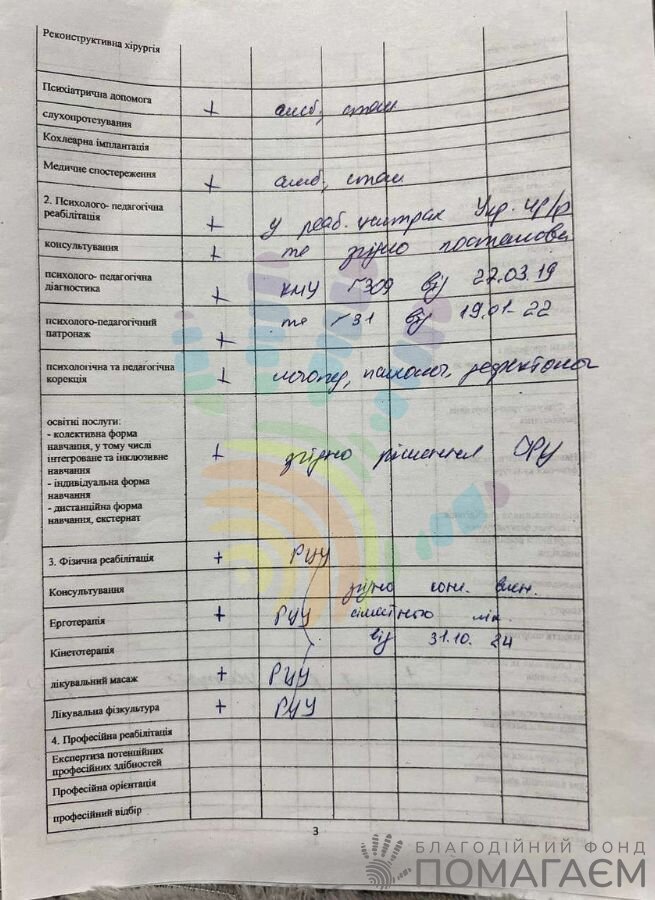 Реконструктивна хірургія
Психіатрична допомога + амб, стац
слухопротезування
Кохлеарна імплантація
Медичне спостереження + амб, стац
2. Психолого- педагогічна
реабілітація + у реаб. центрах Укр.
консультування + та згідно постанови
психолого- педагогічна
діагностика + КМУ №309 від 27.03.19
психолого-педагогічний
патронаж + та №31 від 19.01.22
психологічна та педагогічна
корекція + логопед, психолог, дефектолог
освітні послуги:
- колективна форма
навчання, у тому числі
інтегроване та інклюзивне
навчання + згідно рішення ІРЦ
- індивідуальна форма
навчання
- дистанційна форма
навчання, екстернат
3. Фізична реабілітація + РЦУ
Консультування згідно
Ерготерапія + РЦУ
Кінетотерапія від 31.10.24
лікувальний масаж + РЦУ
Лікувальна фізкультура + РЦУ
4. Професійна реабілітація
Експертиза потенційних
професійних здібностей
Професійна орієнтація
професійний відбір
3
БЛАГОДІЙНИЙ ФОНД
ПОМАГАЄМ